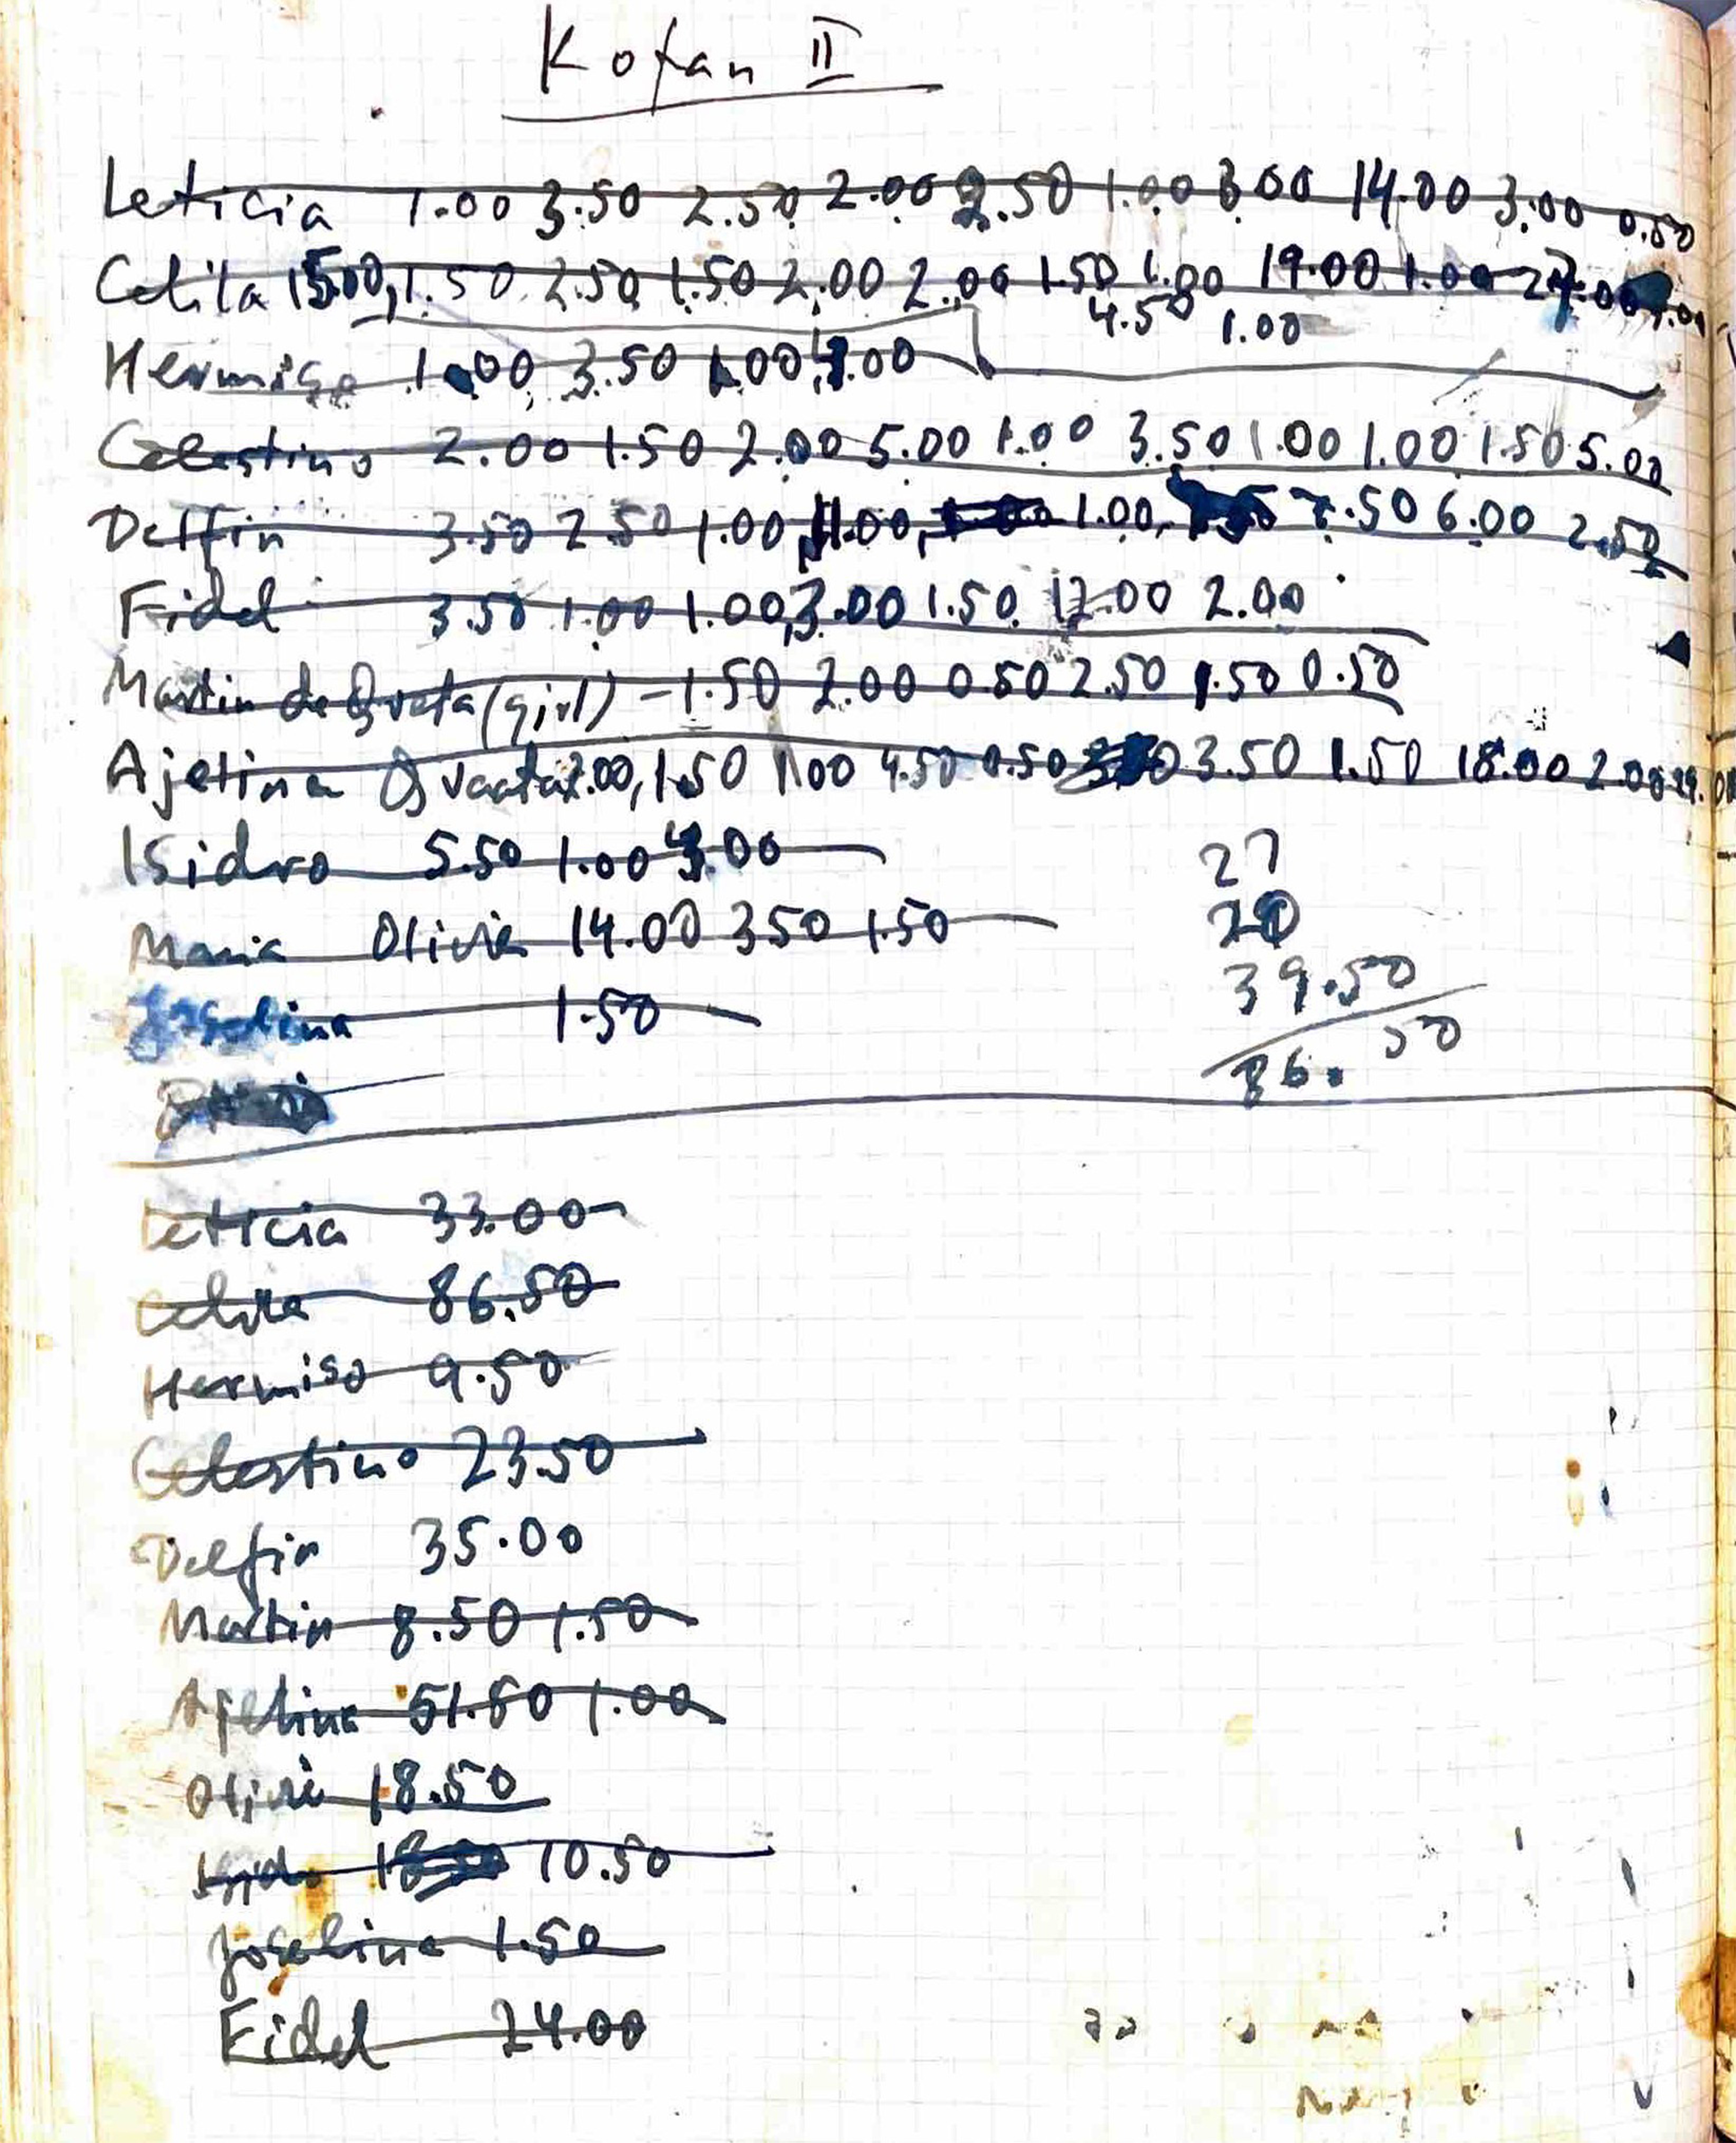 Kofan II
Leticia 1.00 3.50 2.50 2.00 2.50 1.00 3.00 14.00 3.00 0.50
Celita 15.00, 1.50 2.50 1.50 2.00 2.00 1.50 1.00 19.00 1.00 27.00
4.50 1.00
Hermiso 1.00, 3.50 1.00, 4.00
Celestino 2.00 1.50 2.00 5.00 1.00 3.50 1.00 1.00 1.50 5.00
Delfin 3.50 2.50 1.00, 11.00, 1.00, 7.50 6.00 2.50
Fidel 3.50 1.00 1.00, 3.00 1.50 12.00 2.00
Martin de (girl) - 1.50 2.00 0.50 2.50 1.50 0.50
Ajelina 2.00, 1.50 1.00 4.50 0.50 3.50 1.50 18.00 2.00
Isidro 5.50 1.00 4.00
27
Maria Olivia 14.00 3.50 1.50
20
39.50
Joselina 1.50
86.50
Leticia 33.00
Celita 86.50
Hermiso 9.50
Celestino 23.50
Delfin 35.00
Martin 8.50 1.50
Ajelina 51.50 1.00
Olivi 18.50
Isidro 10.50
Joselina 1.50
Fidel 24.00